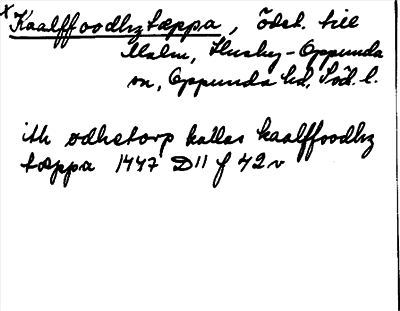 x Kaalffoodhztæppa, ödst. till
Malm, Husby-Oppunda
sn, Oppunda hd, Söd. l.
ith ødhetorp kallas kaalffoodhz
tæppa 1447 D11 f 42v